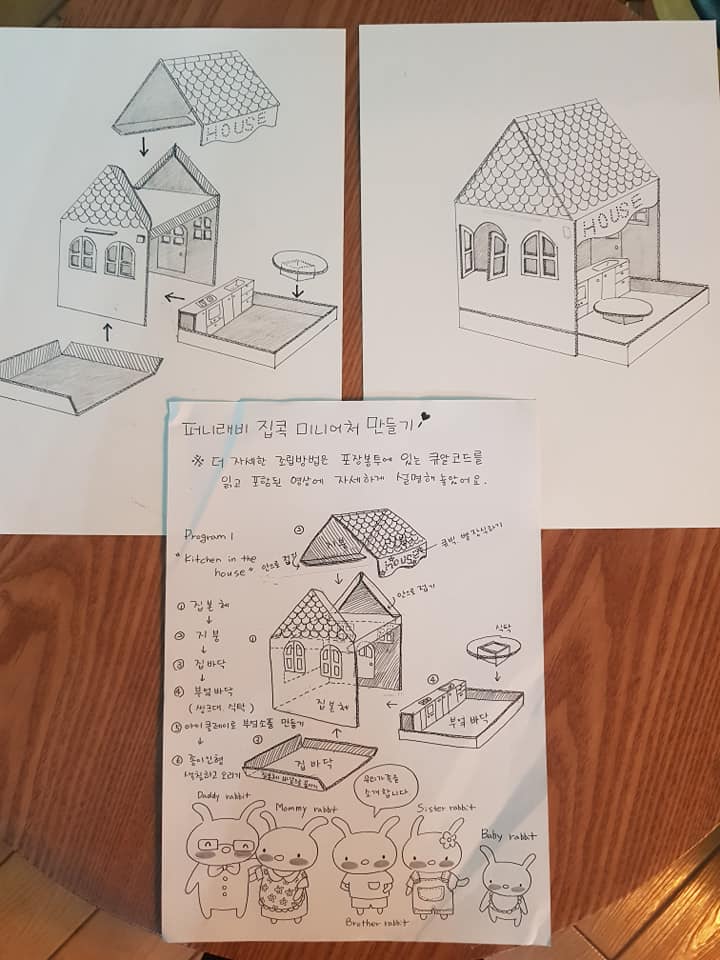 HOUSE
HOUSE
퍼니래비 집콕 미니어쳐 만들기
※ 더 자세한 조립방법은 포장봉투에 있는 큐알코드를
읽고 포함된 영상에 자세하게 설명해 놓았어요.
Program 1
"Kitchen in the
house"
① 집본체
↓
② 지붕
↓
③ 집바닥
↓
④ 부엌바닥
(씽크대. 식탁)
⑤ 아이클레이로 부엌소품 만들기
↓
⑥ 종이인형
색칠하고 오리기
②
지붕
HOUSE
안으로 접기
안으로 접기
①
집본체
식탁
④
부엌 바닥
집바닥
우리가족을
소개합니다.
Daddy rabbit
Mommy rabbit
Brother rabbit
Sister rabbit
Baby rabbit